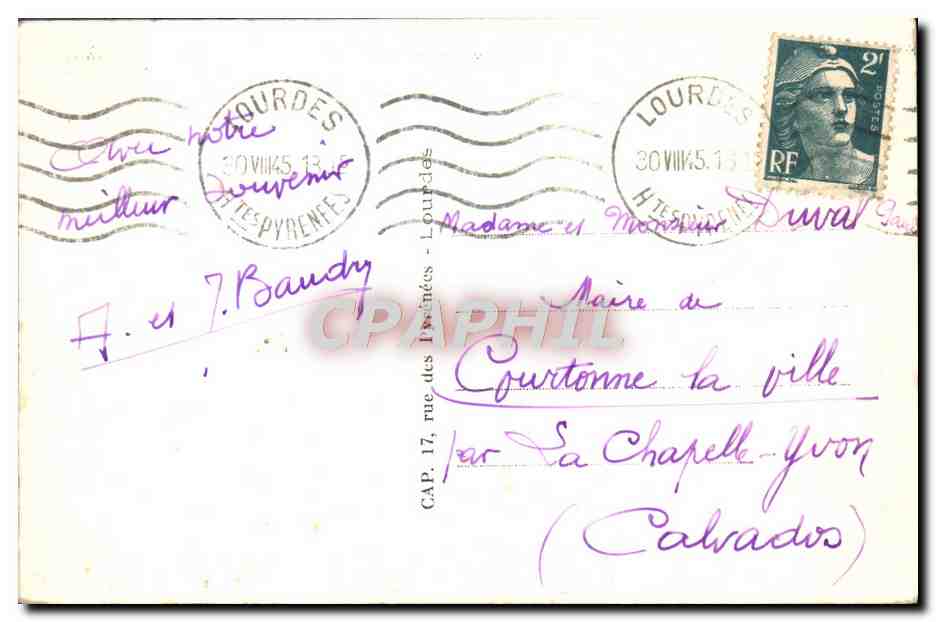 Avec notre
meilleur souvenir
A. et J. Baudry
LOURDES
30 VIII 45. 18
Htes PYRENEES
CAP. 17, rue des Pyrénées - Lourdes
LOURDES
30 VIII 45. 18
Htes PYRENEES
2F
POSTES
RF
Madame et Monsieur Duval
Maire de
Courtonne la ville
par La Chapelle-Yvon
(Calvados)
CPAPHIL